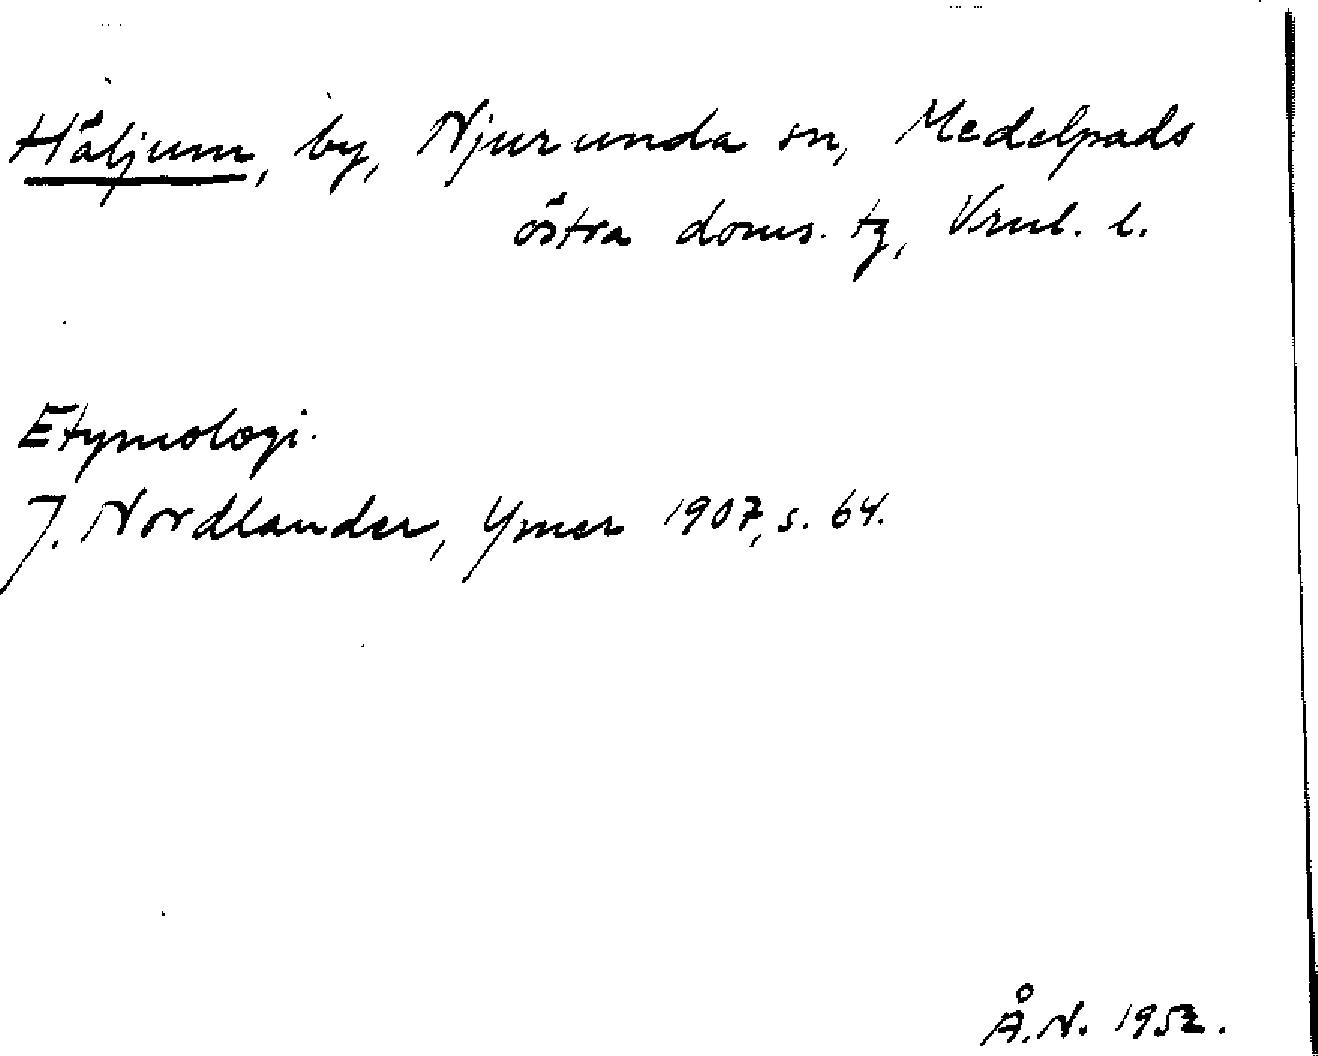 Häljum, by, Njurunda sn, Medelpads
östra doms. tg, Vrnl. l.
Etymologi.
J. Nordlander, Ymer 1907, s. 64.
Å.N. 1952.